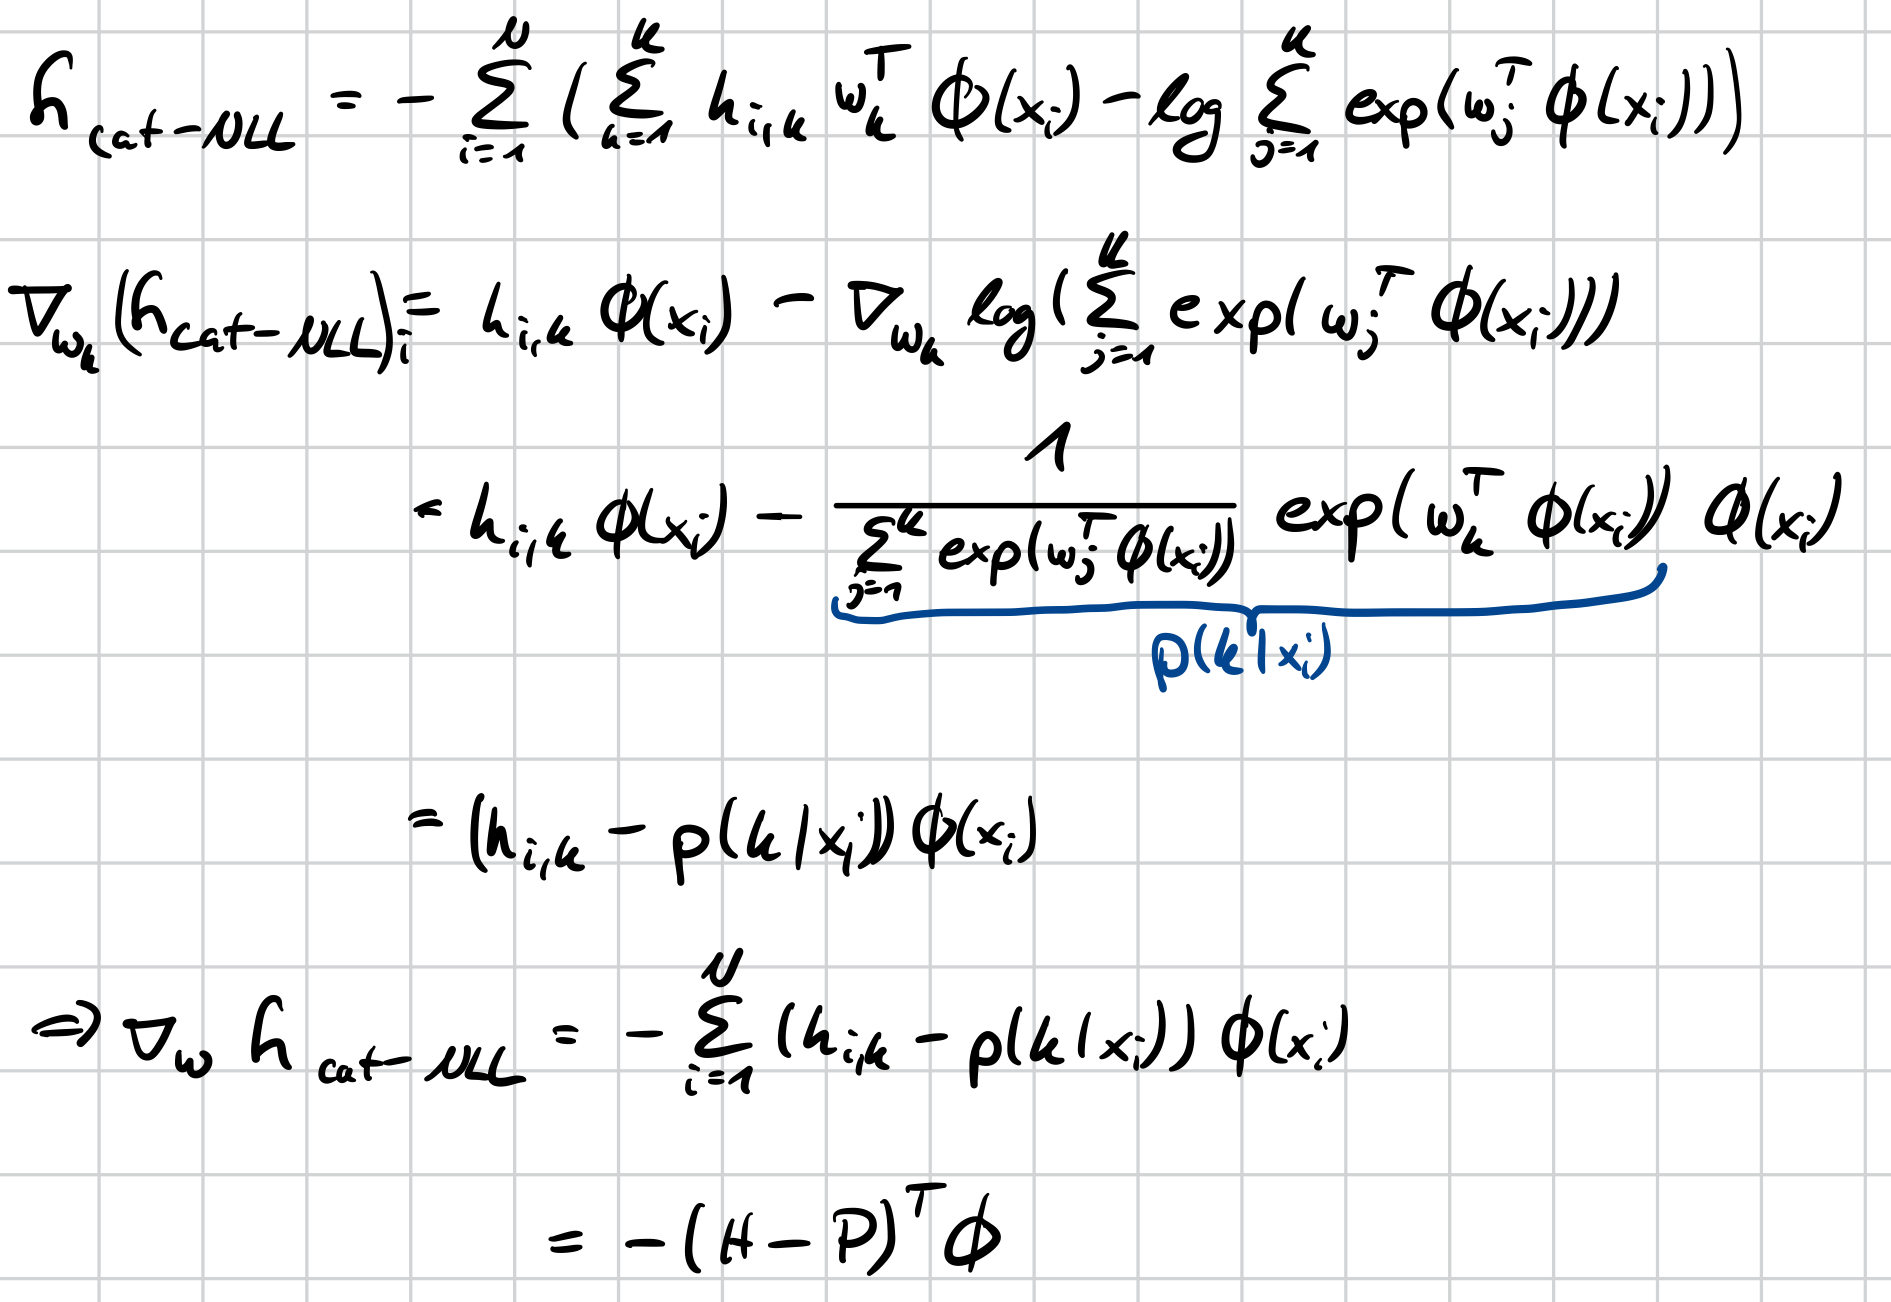 h_{cat-NLL} = - \sum_{i=1}^{N} ( \sum_{k=1}^{K} h_{i,k} w_k^T \phi(x_i) - log \sum_{j=1}^{K} exp(w_j^T \phi(x_i)))
\nabla_{w_k} (h_{cat-NLL})_i = h_{i,k} \phi(x_i) - \nabla_{w_k} log( \sum_{j=1}^{K} exp( w_j^T \phi(x_i)))
= h_{i,k} \phi(x_i) - \frac{1}{\sum_{j=1}^{K} exp(w_j^T \phi(x_i))} exp( w_k^T \phi(x_i)) \phi(x_i)
p(k|x_i)
= (h_{i,k} - p(k|x_i)) \phi(x_i)
⇒ \nabla_w h_{cat-NLL} = - \sum_{i=1}^{N} (h_{i,k} - p(k|x_i)) \phi(x_i)
= - (H - P)^T \phi